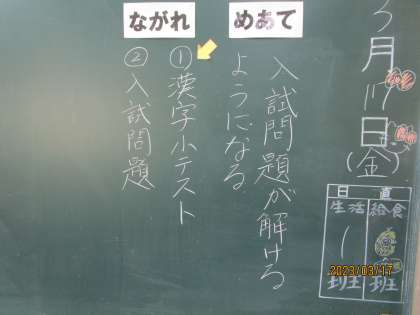 3月17日(金)
日直
生活 給食
1
班 班
めあて
入試問題が解ける
ようになる
ながれ
①漢字小テスト
②入試問題
2023/03/17